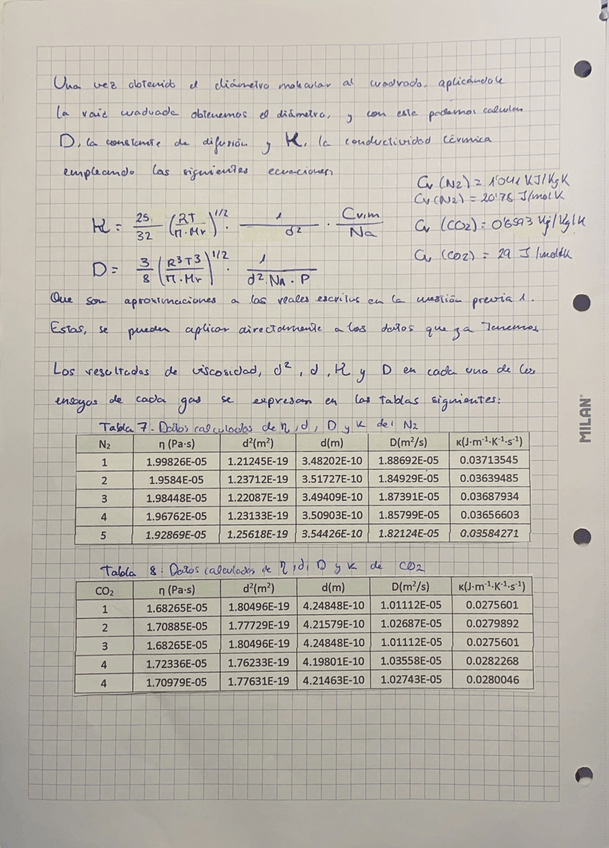 Una vez obtenido el diámetro molecular al cuadrado, aplicándole
la raiz cuadrada obtenemos el diámetro, y con este podemos calcular
D, la constante de difusión y K, la conductividad térmica
empleando las siguientes ecuaciones
Cv (N2) = 1'041 KJ/Kg K
Cv (N2) = 20'76 J/mol K
K = 25/32 (RT/π·Mr)^1/2 · 1/d² · Cv,m/Na
Cv (CO2) = 0'6593 Kj/Kg K
Cv (CO2) = 29 J/mol K
D = 3/8 (R³T³/π·Mr)^1/2 · 1/d²·NA·P
Que son aproximaciones a las reales escritas en la cuestión previa 1.
Estas, se pueden aplicar directamente a los datos que ya tenemos
Los resultados de viscosidad, d², d, K y D en cada uno de los
ensayos de cada gas se expresan en las tablas siguientes:
Tabla 7. Datos calculados de η, d, D y K del N2
N₂ η (Pa·s) d²(m²) d(m) D(m²/s) κ(J·m⁻¹·K⁻¹·s⁻¹)
1 1.99826E-05 1.21245E-19 3.48202E-10 1.88692E-05 0.03713545
2 1.9584E-05 1.23712E-19 3.51727E-10 1.84929E-05 0.03639485
3 1.98448E-05 1.22087E-19 3.49409E-10 1.87391E-05 0.03687934
4 1.96762E-05 1.23133E-19 3.50903E-10 1.85799E-05 0.03656603
5 1.92869E-05 1.25618E-19 3.54426E-10 1.82124E-05 0.03584271
Tabla 8: Datos calculados de η, d, D y K de CO2
CO₂ η (Pa·s) d²(m²) d(m) D(m²/s) κ(J·m⁻¹·K⁻¹·s⁻¹)
1 1.68265E-05 1.80496E-19 4.24848E-10 1.01112E-05 0.0275601
2 1.70885E-05 1.77729E-19 4.21579E-10 1.02687E-05 0.0279892
3 1.68265E-05 1.80496E-19 4.24848E-10 1.01112E-05 0.0275601
4 1.72336E-05 1.76233E-19 4.19801E-10 1.03558E-05 0.0282268
4 1.70979E-05 1.77631E-19 4.21463E-10 1.02743E-05 0.0280046
MILAN